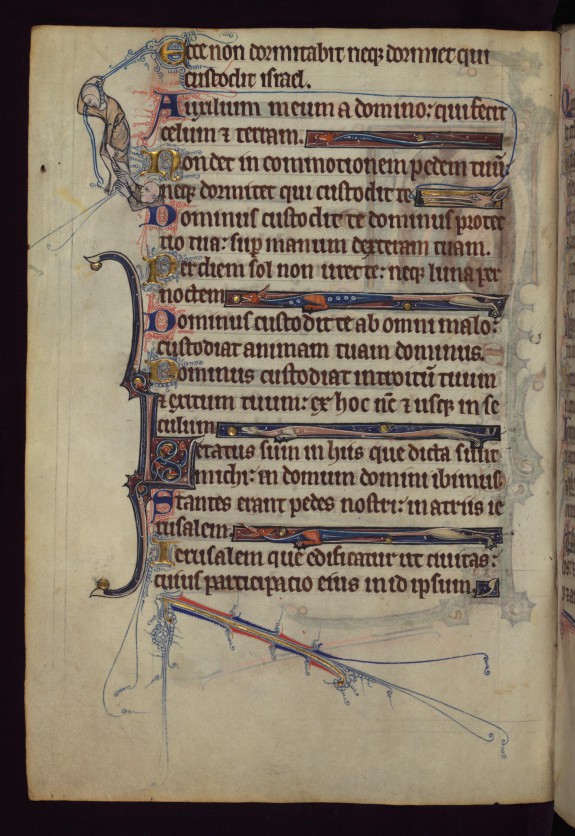 Ecce non dormitabit neqz dormiet qui
custodit israel.
Auxilium meum a domino: qui fecit
celum ⁊ terram.
Non det in commotionem pedem tuū:
neqz dormitet qui custodit te
Dominus custodit te dominus protec
tio tua: sup manum dexteram tuam.
Per diem sol non uret te: neqz luna per
noctem
Dominus custodit te ab omni malo:
custodiat animam tuam dominus.
Dominus custodiat introitū tuum
⁊ exitum tuum: ex hoc nc̄ ⁊ usqz in se
culum
Letatus sum in hiis que dicta sunt
michi: in domum domini ibimus
Stantes erant pedes nostri: in atriis ie
rusalem
Ierusalem que edificatur ut ciuitas:
cuius participatio eius in id ipsum.